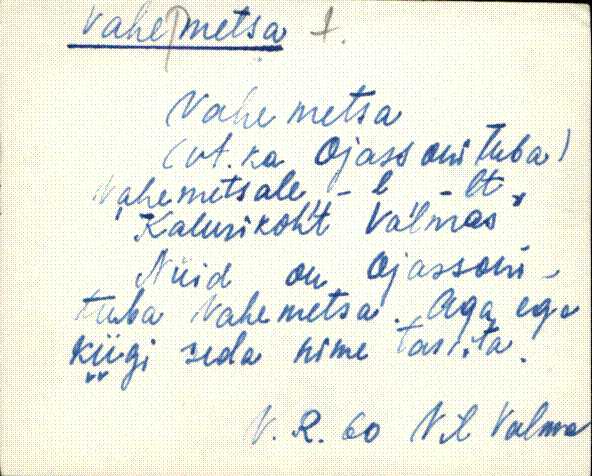 Vahemetsa t.
Vahemetsa
(vt. ka Ojassoni tuba)
Vahemetsale, -l -lt,
Kalurikoht Valmas
Nüid on Ojassoni-
tuba Vahemetsa. Aga ega
kiigi seda nime
V. R. 60 Vil Valma